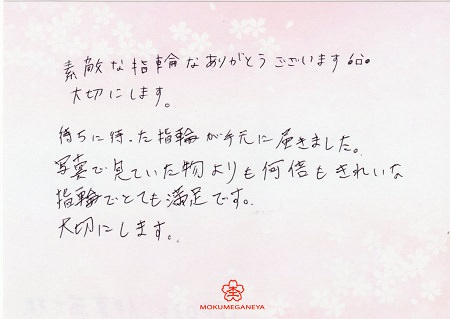 素敵な指輪をありがとうございます
大切にします。
待ちに待った指輪が手元に届きました。
写真で見ていた物よりも何倍もきれいな
指輪でとても満足です。
大切にします。
MOKUMEGANEYA